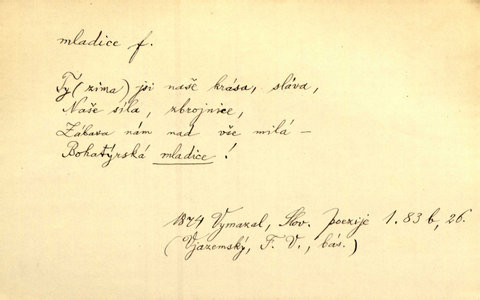 mladice f.
Ty (zima) jsi naše krása, sláva,
Naše síla, zbrojnice,
Zábava nám nad vše milá —
Bohatýrská mladice!
1874 Vymazal, Slov. poezije 1. 83 b, 26.
(Vjazemský, F. V., bás.)